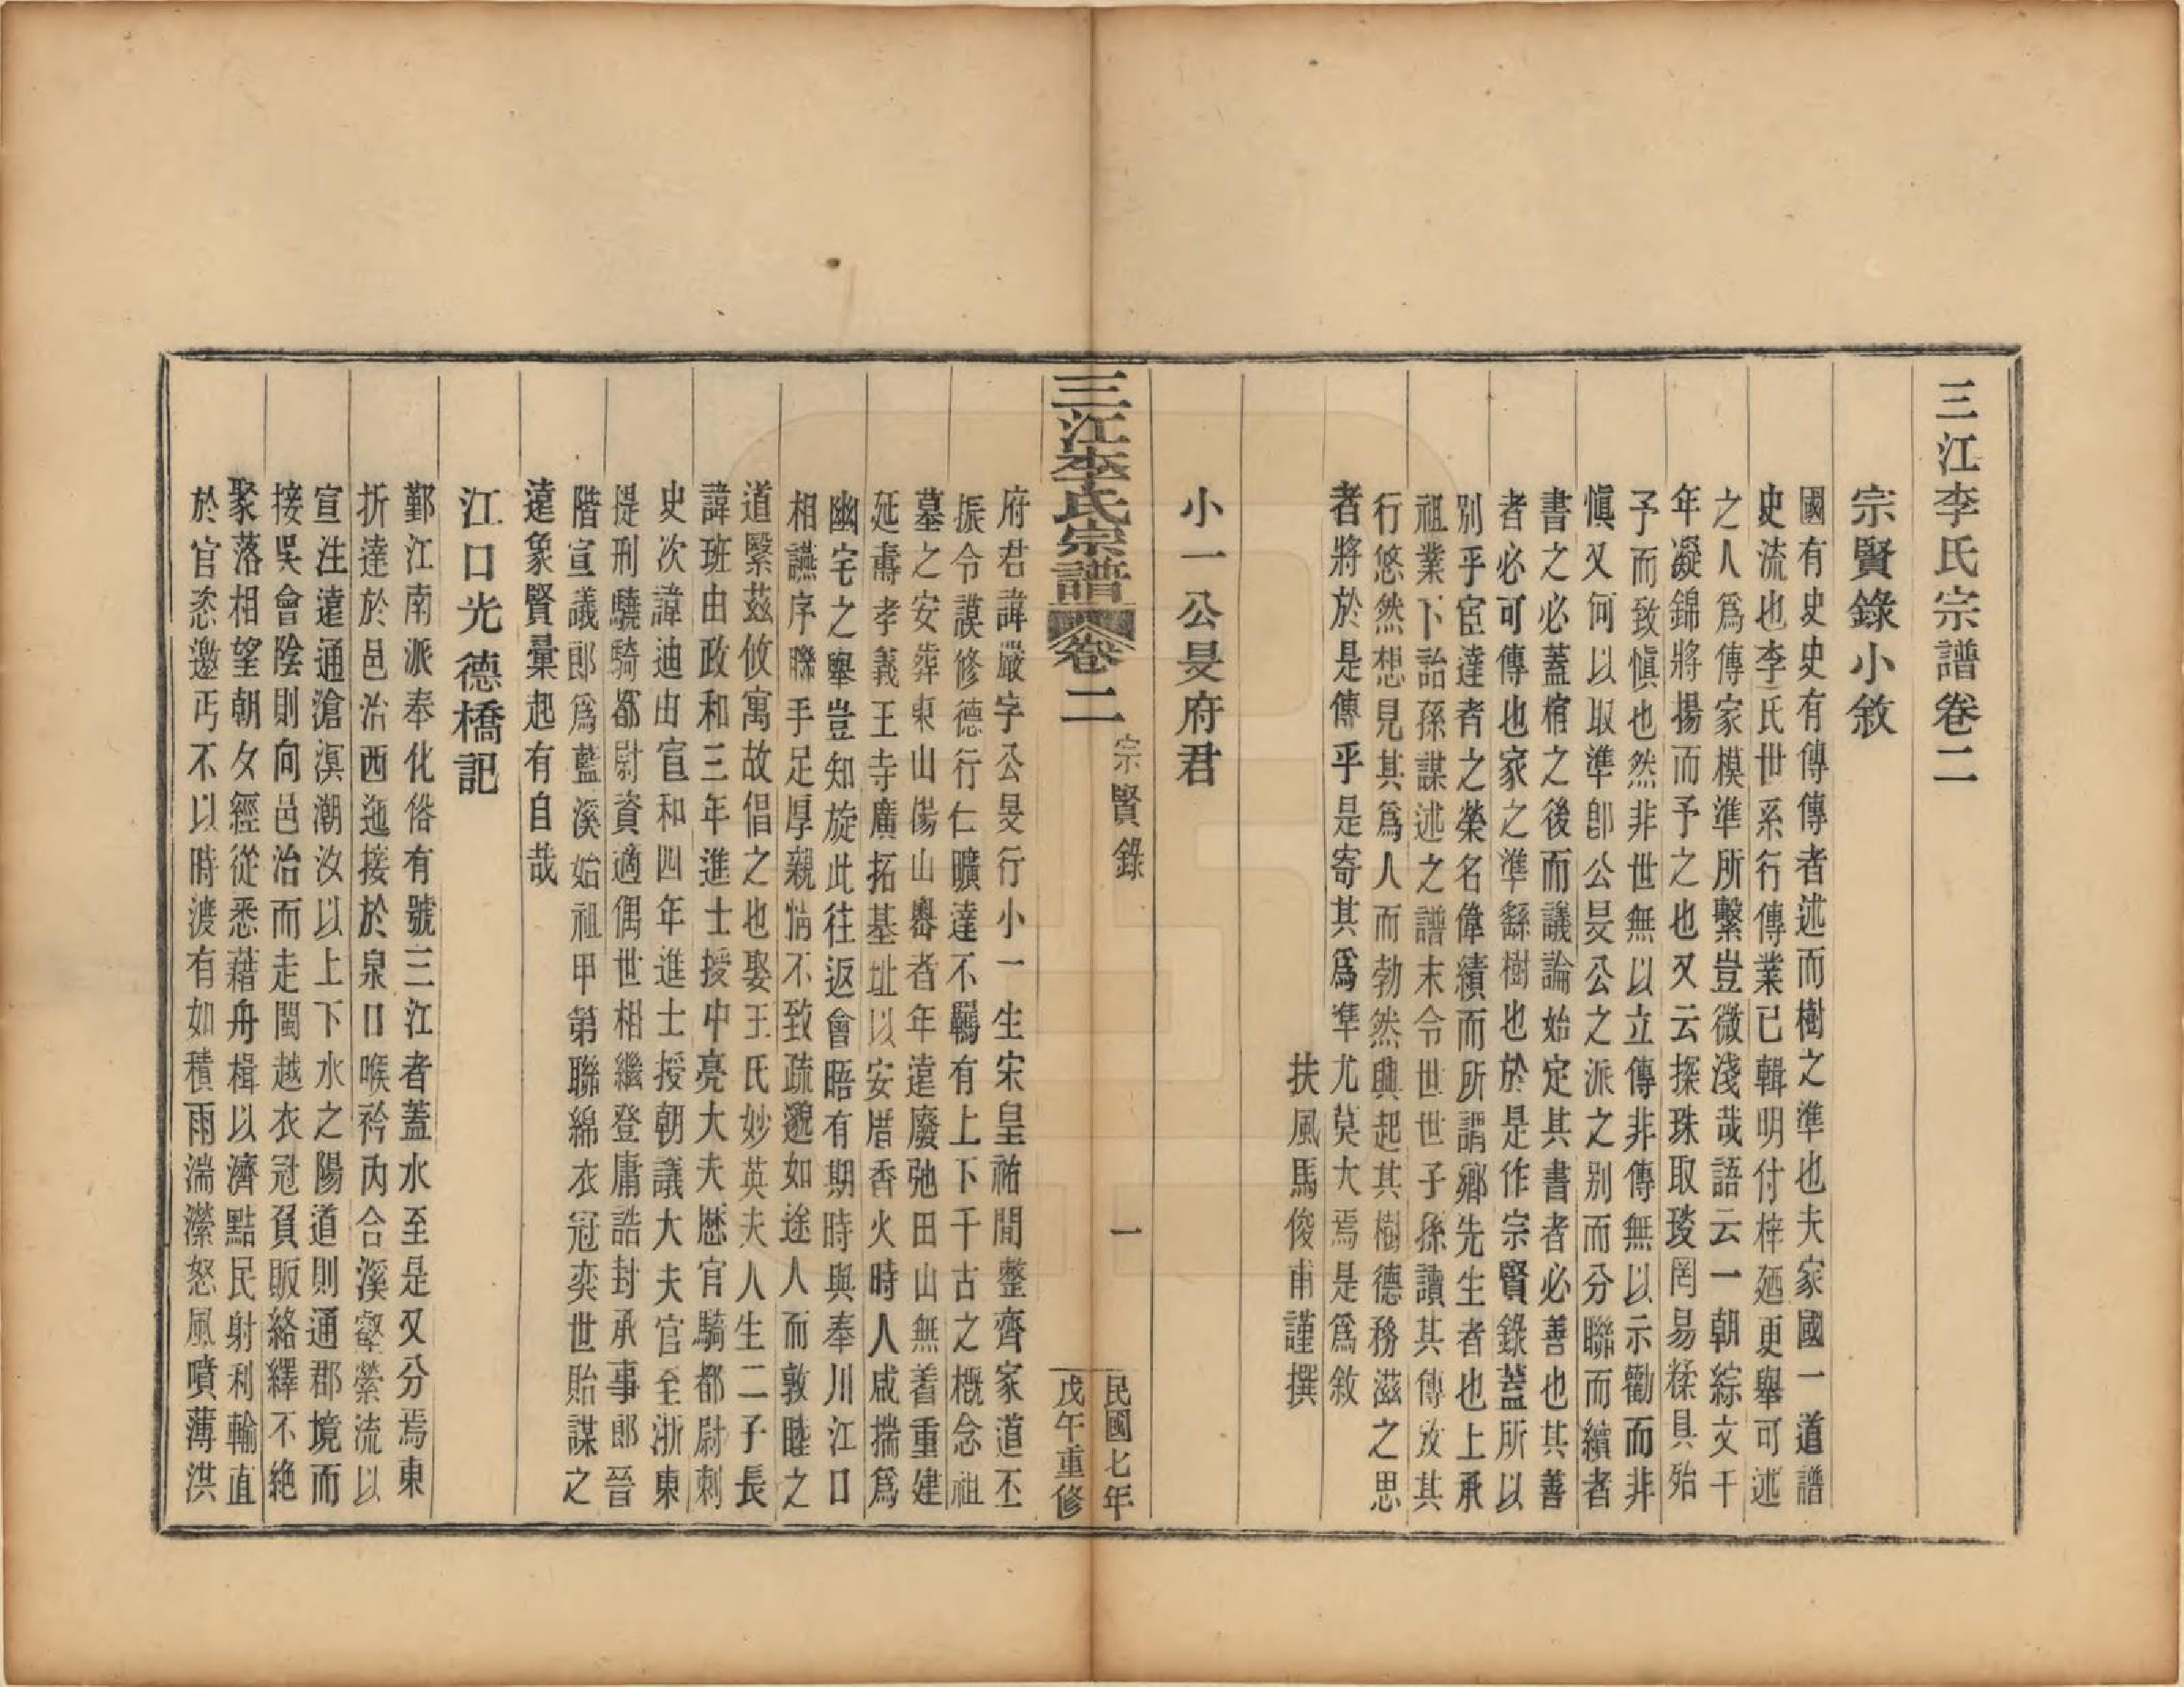 三江李氏宗譜卷二
宗賢錄小敘
國有史史有傳傳者述而樹之準也夫家國一道譜
史流也李氏世系行傳業已輯明付梓廼更舉可述
之人爲傳家模準所繫豈微淺哉語云一朝綜文千
年凝錦將揚而予之也又云探珠取琰罔易糅具殆
予而致愼也然非世無以立傳非傳無以示勸而非
愼又何以取準卽公旻公之派之別而分聯而續者
書之必蓋棺之後而議論始定其書者必善也其善
者必可傳也家之準繇樹也於是作宗賢錄蓋所以
別乎宦達者之榮名偉績而所謂鄉先生者也上承
祖業下詒孫謀述之譜末令世世子孫讀其傳攷其
行悠然想見其爲人而勃然興起其樹德務滋之思
者將於是傳乎是寄其爲準尤莫大焉是爲敘
扶風馬俊甫謹撰
小一公旻府君
三江李氏宗譜 卷二 宗賢錄 一 民國七年戊午重修
府君諱嚴字公旻行小一生宋皇祐間整齊家道丕
振令謨修德行仁曠達不羈有上下千古之概念祖
墓之安葬東山傷山嚳者年遠廢弛田山無著重建
延壽孝義王寺廣拓基址以安厝香火時人咸揣爲
幽宅之舉豈知旋此往返會晤有期時與奉川江口
相讌序聯手足厚親情不致疏邈如途人而敦睦之
道繫茲攸寓故倡之也娶王氏妙英夫人生二子長
諱班由政和三年進士授中亮大夫歷官騎都尉刺
史次諱迪由宣和四年進士授朝議大夫官至浙東
提刑驍騎都尉資適偶世相繼登庸誥封承事郎晉
階宣議郎爲藍溪始祖甲第聯綿衣冠奕世貽謀之
遠象賢彙起有自哉
江口光德橋記
鄞江南派奉化俗有號三江者蓋水至是又分焉東
折達於邑治西迤接於泉口喉衿丙合溪壑縈流以
宣注遠通滄溟潮汝以上下水之陽道則通郡境而
接吳會陰則向邑治而走閩越衣冠負販絡繹不絶
聚落相望朝夕經從悉藉舟楫以濟黠民射利輸直
於官恣邀丐不以時渡有如積雨湍瀠怒風噴薄洪